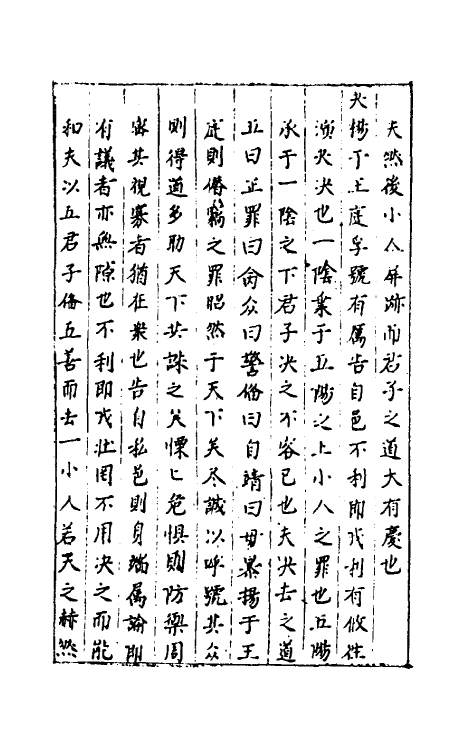 夫然後小人屏跡而君子之道大有慶也
夬揚于王庭孚號有厲告自邑不利即戎利有攸往
演夬決也一陰乗于五陽之上小人之罪也五陽
承于一陰之下君子決之不容已也夫決去之道
五曰正罪曰㑹众曰警俻曰自靖曰毋暴揚于王
庭則僣竊之罪昭然于天下矣尽誠以呼號其众
則得道多助天下共誅之矣慄〻危惧則防禦周
宻其視寡者猶在衆也告自私邑則身端属諭即
有議者亦無隙也不利即戎壮罔不用决之而能
和夫以五君子俻五善而去一小人若天之赫然